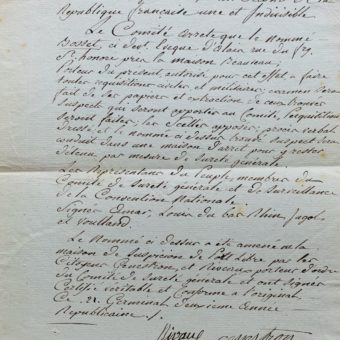 République française une et Indivisible
Le Comité arrete que le Nommé
rue du fbg
St honoré près la maison
porteur du present, autorisé pour cet effet a faire
toutes requisitions civiles et militaires, examen sera
fait de ses papiers et extraction de ceux trouvés
Suspects qui seront apportés au Comité,
Seront faites, les Scellés apposés, procès verbal
Dressé et le nommé ci dessus sera
conduit dans une maison d'arret pour y rester
detenu par mesure de Sureté générale
Les Représentants du Peuple membres du
Comité de Sureté générale et de Surveillance
de la Convention Nationale
Signés Louis du bas Rhin, Jagot
et Voulland.
Le Nommé ci dessus a été amené a la
maison de Suspicion de Libre par les
Citoyens et porteur d'ordre
du Comité de Sureté générale et ont signés
Certifié véritable et Conforme a l'original
Ce 21 Germinal deuxieme année
Republicaine